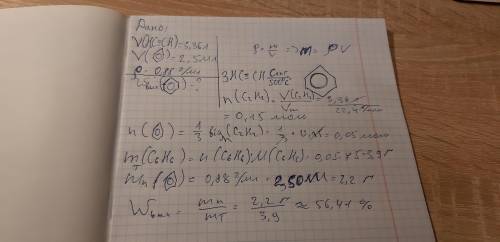 Дано:
V(HC≡CH)=3,36л
V(⌬)=2,5мл
ρ=0,88г/мл
Wвых(⌬)=?
ρ=m/V => m=ρV
3HC≡CH Cакт. 500°C
n(C₂H₂)=V(C₂H₂)/Vm=3,36л/22,4л/моль
=0,15 моль
n(⌬)=1/3 n(C₂H₂)=1/3·0,15=0,05 моль
mт(C₆H₆)=n(C₆H₆)·M(C₆H₆)=0,05·78=3,9г
mп(⌬)=0,88г/мл·2,50мл=2,2г
Wвых=mп/mт=2,2г/3,9≈56,41%